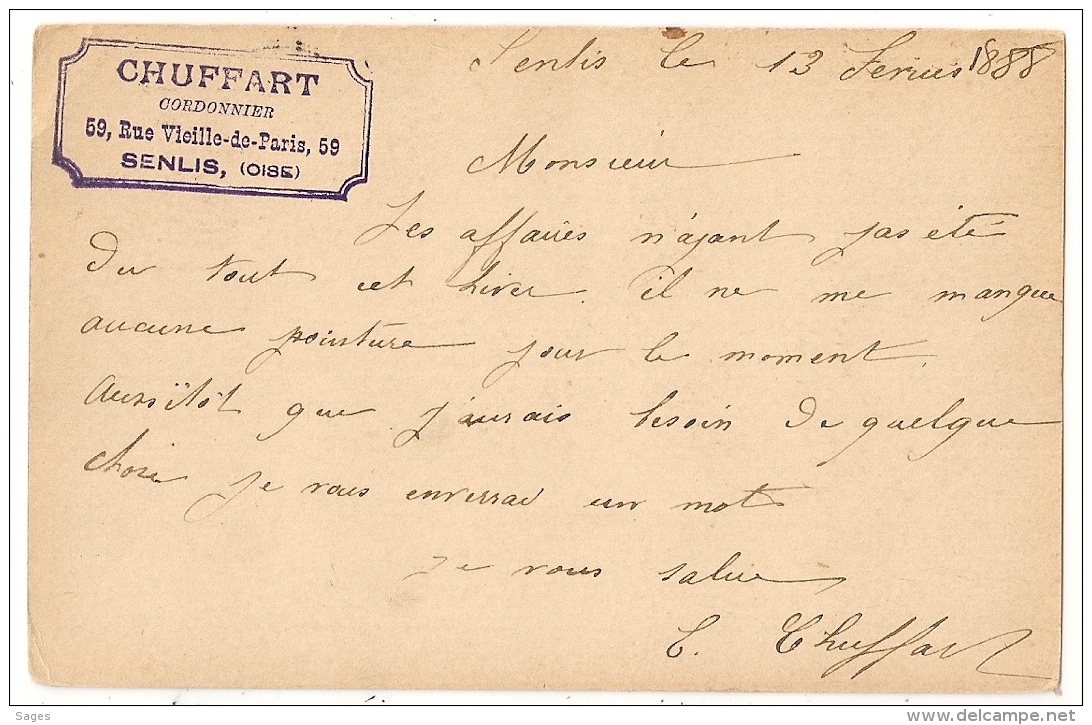 CHUFFART
CORDONNIER
59, Rue Vieille-de-Paris, 59
SENLIS, (OISE)
Senlis le 13 1888
Monsieur
Les affaires n'ayant pas été
du tout cet hiver. il ne me manque
aucune pointure pour le moment.
Aussitôt que j'aurais besoin de quelque
chose je vous enverrai un mot
je vous salue
C. Chuffart
Sages
delcampe.net